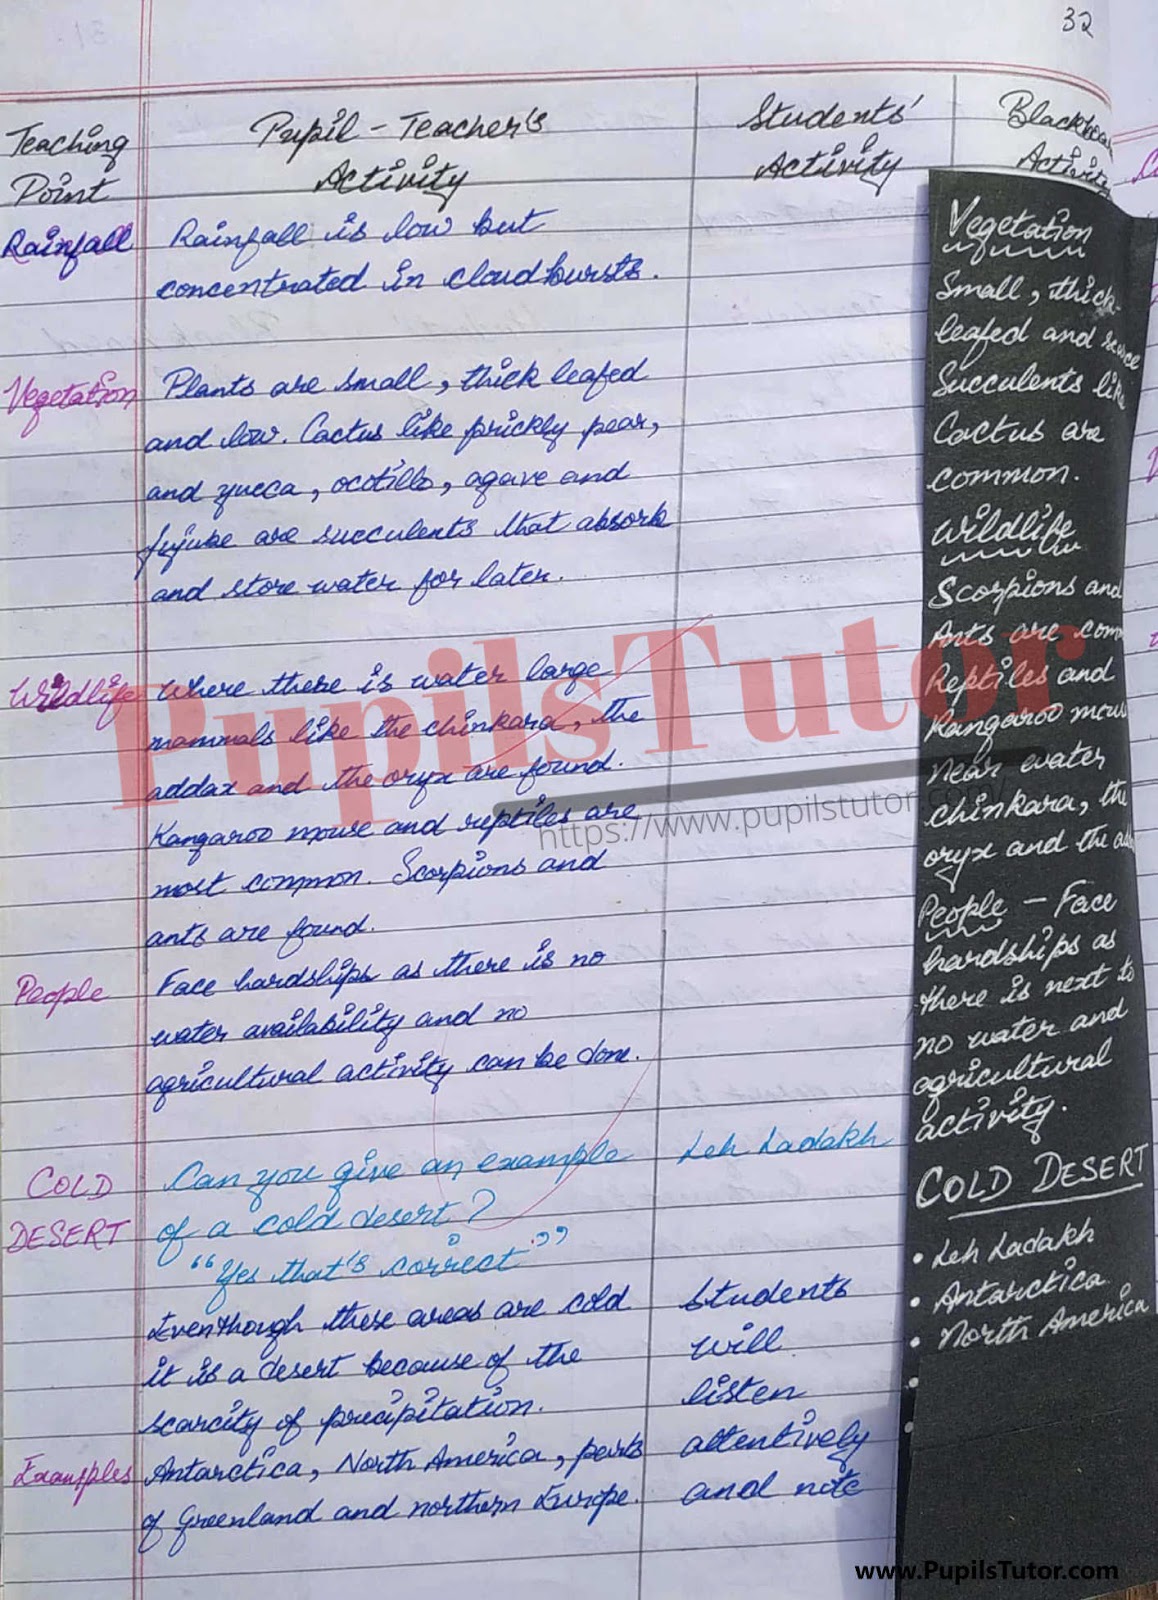 32
Teaching Point
Pupil - Teacher's Activity
Students' Activity
Activity
Rainfall
Rainfall is low but
concentrated in cloudbursts.
Vegetation
Plants are small, thick leafed
and low. Cactus like prickly pear,
and yucca, ocotillo, agave and
jujube are succulents that absorb
and store water for later.
Wildlife
Where there is water large
mammals like the chinkara, the
addax and the oryx are found.
Kangaroo mouse and reptiles are
most common. Scorpions and
ants are found.
People
Face hardships as there is no
water availability and no
agricultural activity can be done.
COLD DESERT
Can you give an example
of a cold desert?
"Yes that's correct"
Eventhough these areas are cold
it is a desert because of the
scarcity of precipitation.
Examples
Antarctica, North America, parts
of Greenland and northern Europe.
Leh Ladakh
Students
will
listen
attentively
and note
Vegetation
Small, thick-
leafed and
Succulents
Cactus are
common.
Wildlife
Scorpions and
Ants are
Reptiles and
Kangaroo
near water
chinkara, the
oryx and the
People - Face
hardships as
there is next to
no water and
agricultural
activity.
COLD DESERT
• Leh Ladakh
• Antarctica
• North America
PupilsTutor
https://www.pupilstutor.com/
www.PupilsTutor.com